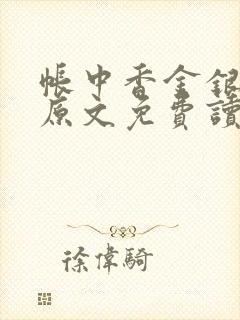 帳中香金銀
原文免費讀
徐偉騎